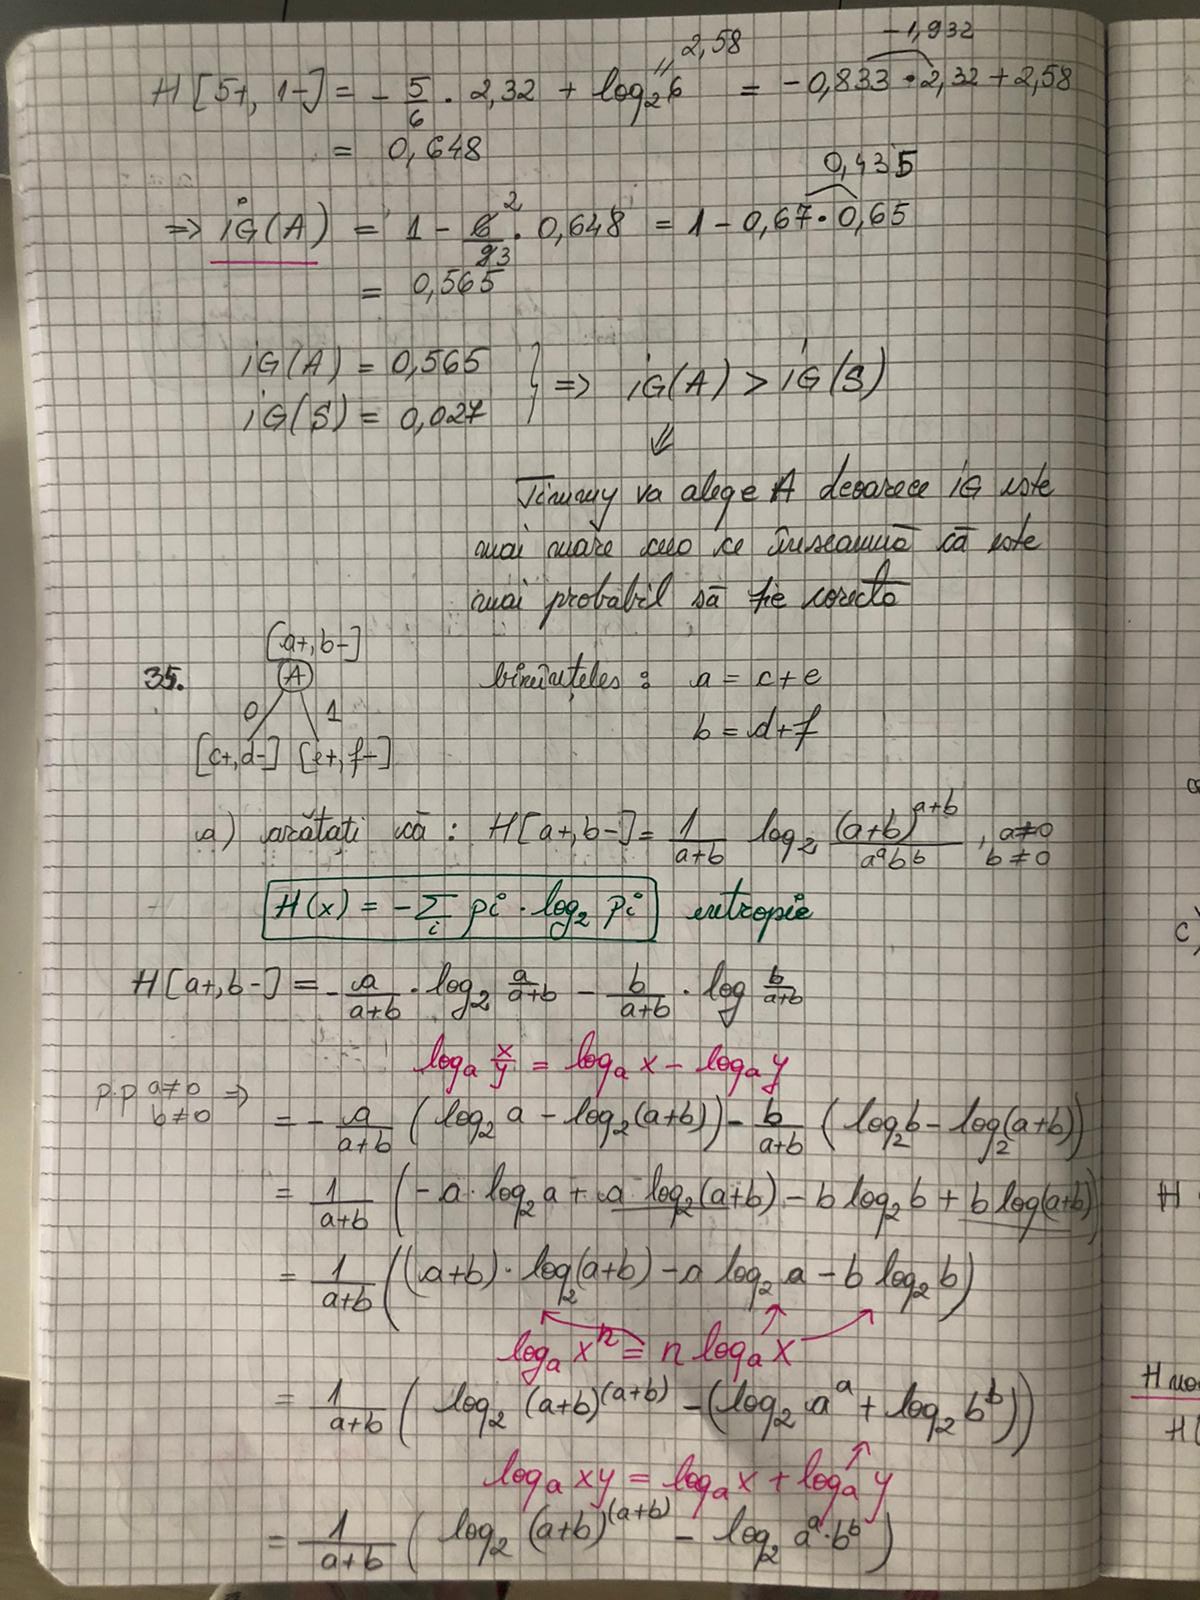 -1,932
2,58
H[5+, 1-] = - 5/6 · 2,32 + log₂6 = -0,833 · 2,32 + 2,58
= 0,648
0,435
=> iG(A) = 1 - 6/9 · 0,648 = 1 - 0,67 · 0,65
2
3
= 0,565
iG(A) = 0,565
iG(S) = 0,027 } => iG(A) > iG(S)
⇓
Timmy va alege A deoarece iG este
mai mare ceea ce înseamnă că este
mai probabil să fie corectă
[a+, b-]
35. (A) bineînțeles : a = c+e
0 1 b = d+f
[c+, d-] [e+, f-]
a) arătați că : H[a+, b-] = 1/(a+b) log₂ (a+b)^(a+b)/(a^a b^b) , a≠0 b≠0
H(x) = - Σ_i pi · log₂ pi entropie
H[a+, b-] = - a/(a+b) · log₂ a/(a+b) - b/(a+b) · log b/(a+b)
log_a x/y = log_a x - log_a y
p.p a≠0 b≠0 =>
= - a/(a+b) (log₂ a - log₂(a+b)) - b/(a+b) (log₂b - log₂(a+b))
= 1/(a+b) (-a · log₂ a + a log₂(a+b) - b log₂ b + b log(a+b))
= 1/(a+b) ((a+b) · log₂(a+b) - a log₂ a - b log₂ b)
log_a x^n = n log_a x
= 1/(a+b) (log₂ (a+b)^(a+b) - (log₂ a^a + log₂ b^b))
log_a xy = log_a x + log_a y
= 1/(a+b) (log₂ (a+b)^(a+b) - log₂ a^a · b^b)
c)
H
H(